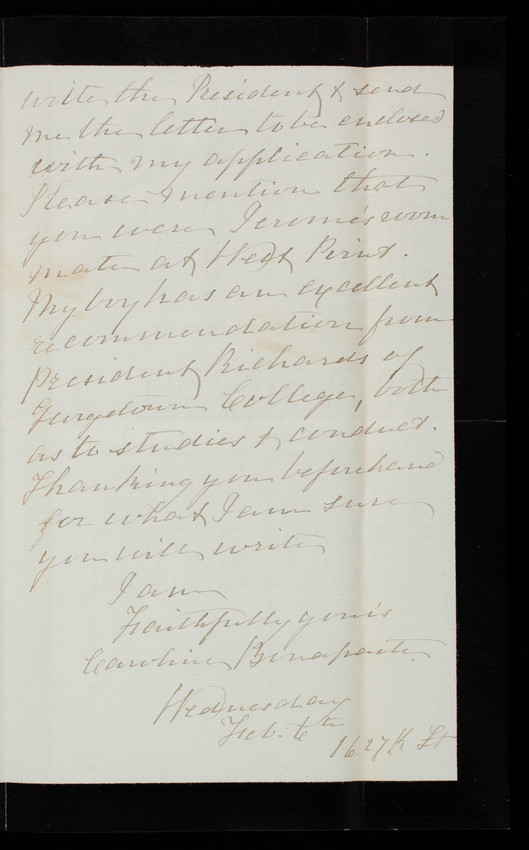 write the President & send
me the letter to be enclosed
with my application.
Please mention that
you were Jerome's room
mate at West Point.
My boy has an excellent
recommendation from
President Richards of
Georgetown College, both
as to studies & conduct.
Thanking you beforehand
for what I am sure
you will write
I am
Faithfully yours
Caroline Bonaparte.
Wednesday
Feb. 6th